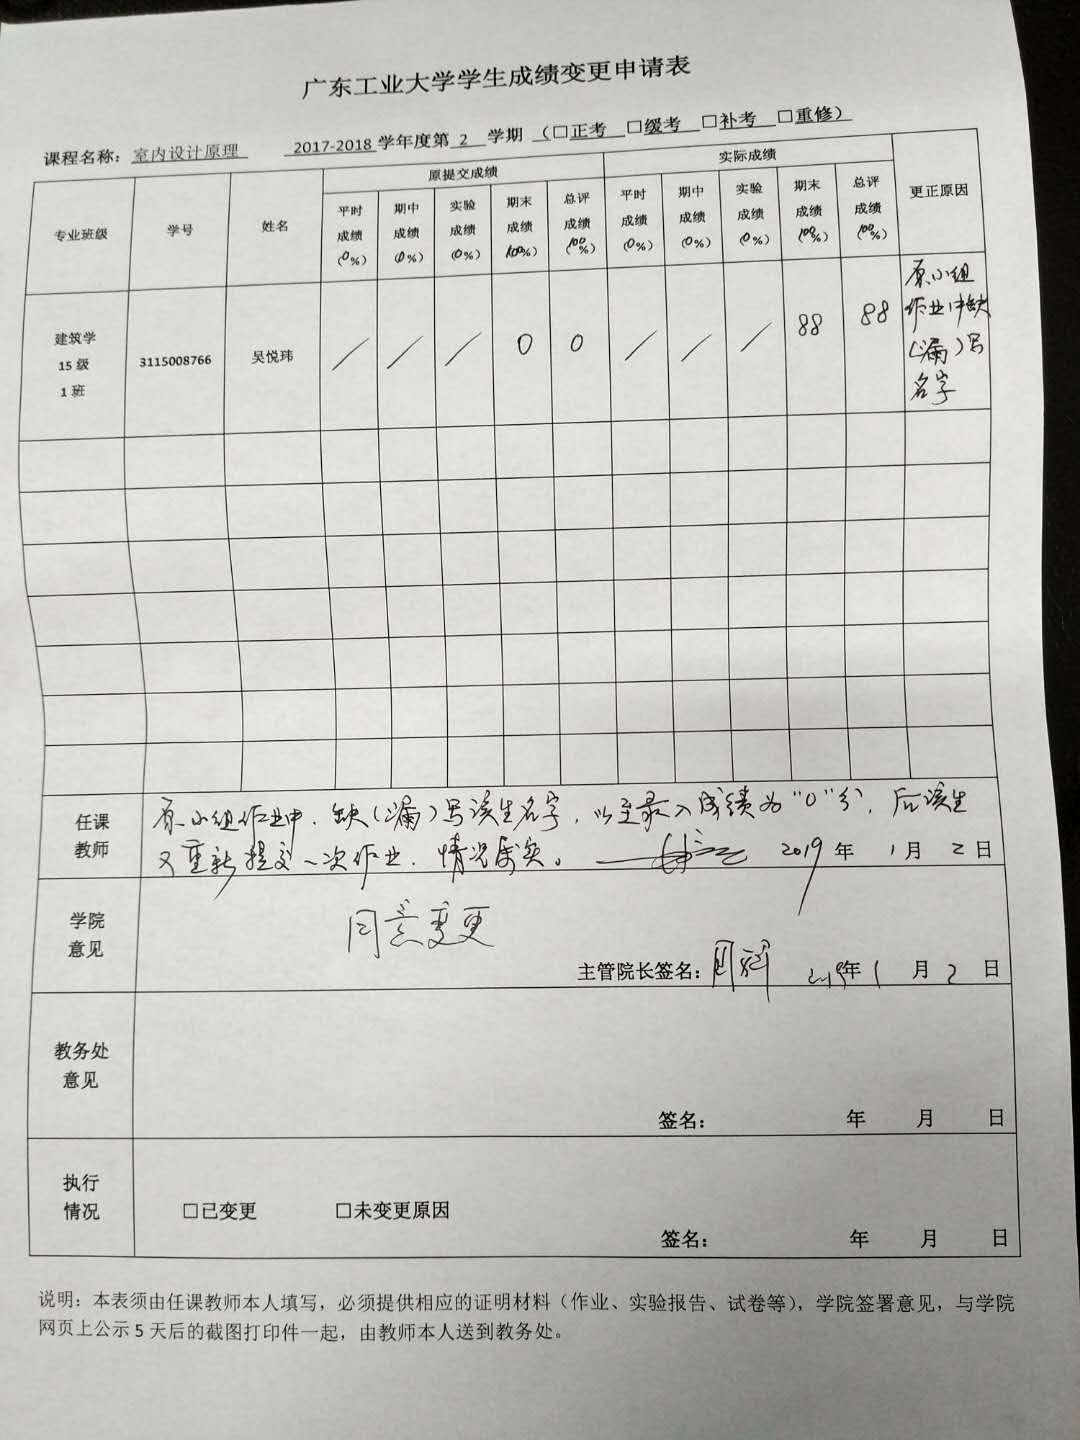 广东工业大学学生成绩变更申请表
课程名称：室内设计原理 2017-2018学年度第 2 学期（□正考 □缓考 □补考 □重修）
专业班级 学号 姓名 原提交成绩 实际成绩 更正原因
平时成绩(0%) 期中成绩(0%) 实验成绩(0%) 期末成绩(100%) 总评成绩(100%) 平时成绩(0%) 期中成绩(0%) 实验成绩(0%) 期末成绩(100%) 总评成绩(100%)
建筑学
15级
1班
3115008766 吴悦玮 / / / 0 0 / / / 88 88
原小组
作业中缺
(漏)写
名字
任课
教师
原小组作业中，缺(漏)写该生名字，以至录入成绩为"0"分，后该生
又重新提交一次作业，情况属实。 2019年1月2日
学院
意见
同意变更
主管院长签名： 2019年1月2日
教务处
意见
签名： 年 月 日
执行
情况
□已变更 □未变更原因
签名： 年 月 日
说明：本表须由任课教师本人填写，必须提供相应的证明材料（作业、实验报告、试卷等），学院签署意见，与学院
网页上公示5天后的截图打印件一起，由教师本人送到教务处。